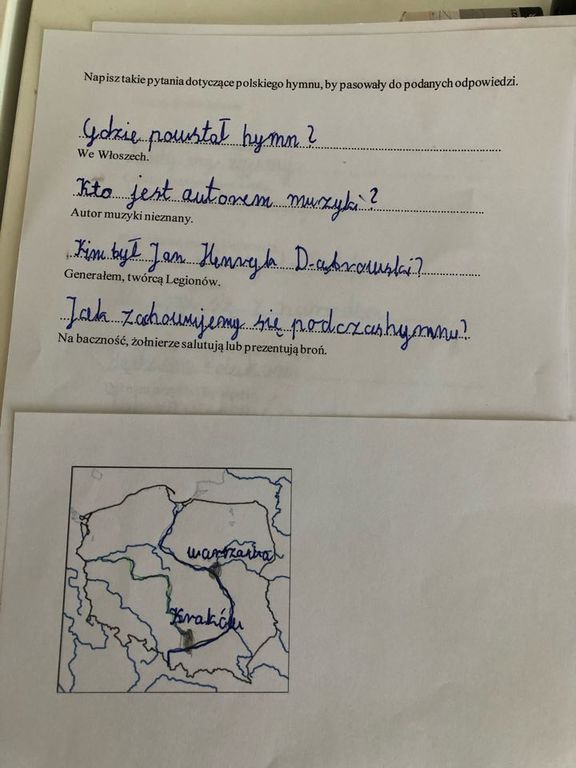 Napisz takie pytania dotyczące polskiego hymnu, by pasowały do podanych odpowiedzi.
Gdzie powstał hymn?
We Włoszech.
Kto jest autorem muzyki?
Autor muzyki nieznany.
Kim był Jan Henryk Dąbrowski?
Generałem, twórcą Legionów.
Jak zachowujemy się podczas hymnu?
Na baczność, żołnierze salutują lub prezentują broń.
warszawa
Kraków